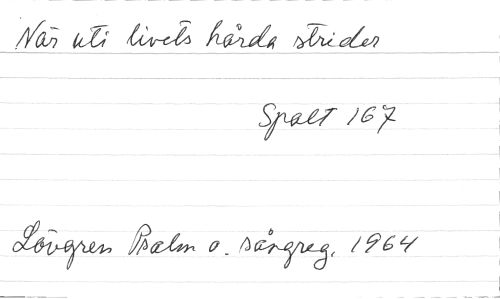 När uti livets hårda strider
Spalt 167
Lövgren Psalm o. sångreg. 1964